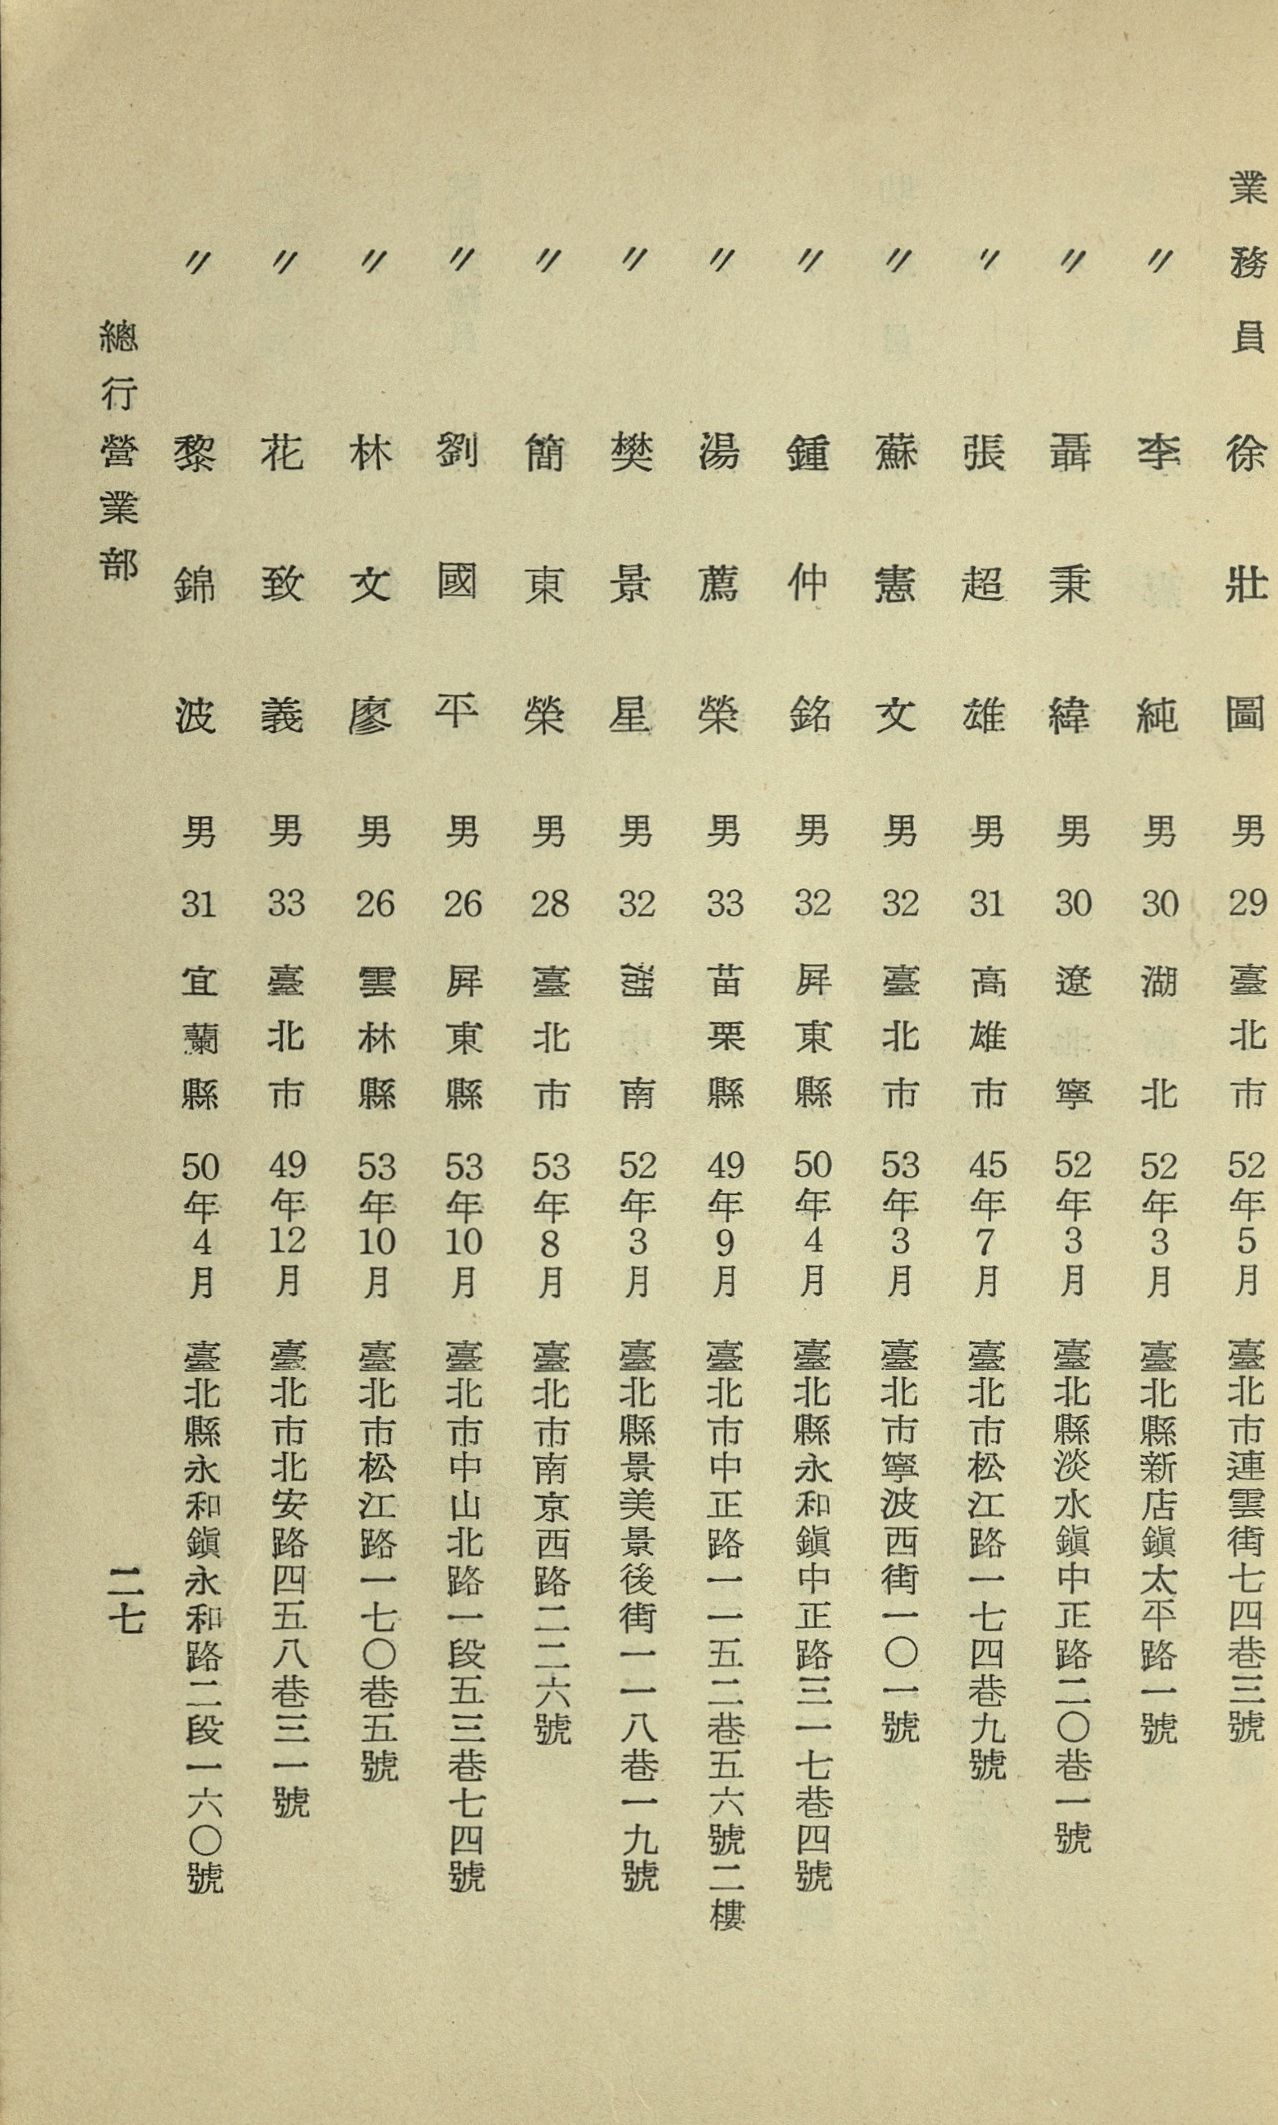 業務員 徐壯圖 男 29 臺北市 52年5月 臺北市連雲街七四巷三號
〃 李純 男 30 湖北 52年3月 臺北縣新店鎭太平路一號
〃 聶秉緯 男 30 遼寧 52年3月 臺北縣淡水鎭中正路二〇巷一號
〃 張超雄 男 31 高雄市 45年7月 臺北市松江路一七四巷九號
〃 蘇憲文 男 32 臺北市 53年3月 臺北市寧波西街一〇一號
〃 鍾仲銘 男 32 屛東縣 50年4月 臺北縣永和鎭中正路三一七巷四號
〃 湯薦榮 男 33 苗栗縣 49年9月 臺北市中正路一一五二巷五六號二樓
〃 樊景星 男 32 南 52年3月 臺北縣景美景後街一一八巷一九號
〃 簡東榮 男 28 臺北市 53年8月 臺北市南京西路二二六號
〃 劉國平 男 26 屛東縣 53年10月 臺北市中山北路一段五三巷七四號
〃 林文廖 男 26 雲林縣 53年10月 臺北市松江路一七〇巷五號
〃 花致義 男 33 臺北市 49年12月 臺北市北安路四五八巷三一號
〃 黎錦波 男 31 宜蘭縣 50年4月 臺北縣永和鎭永和路二段一六〇號
總行營業部
二七